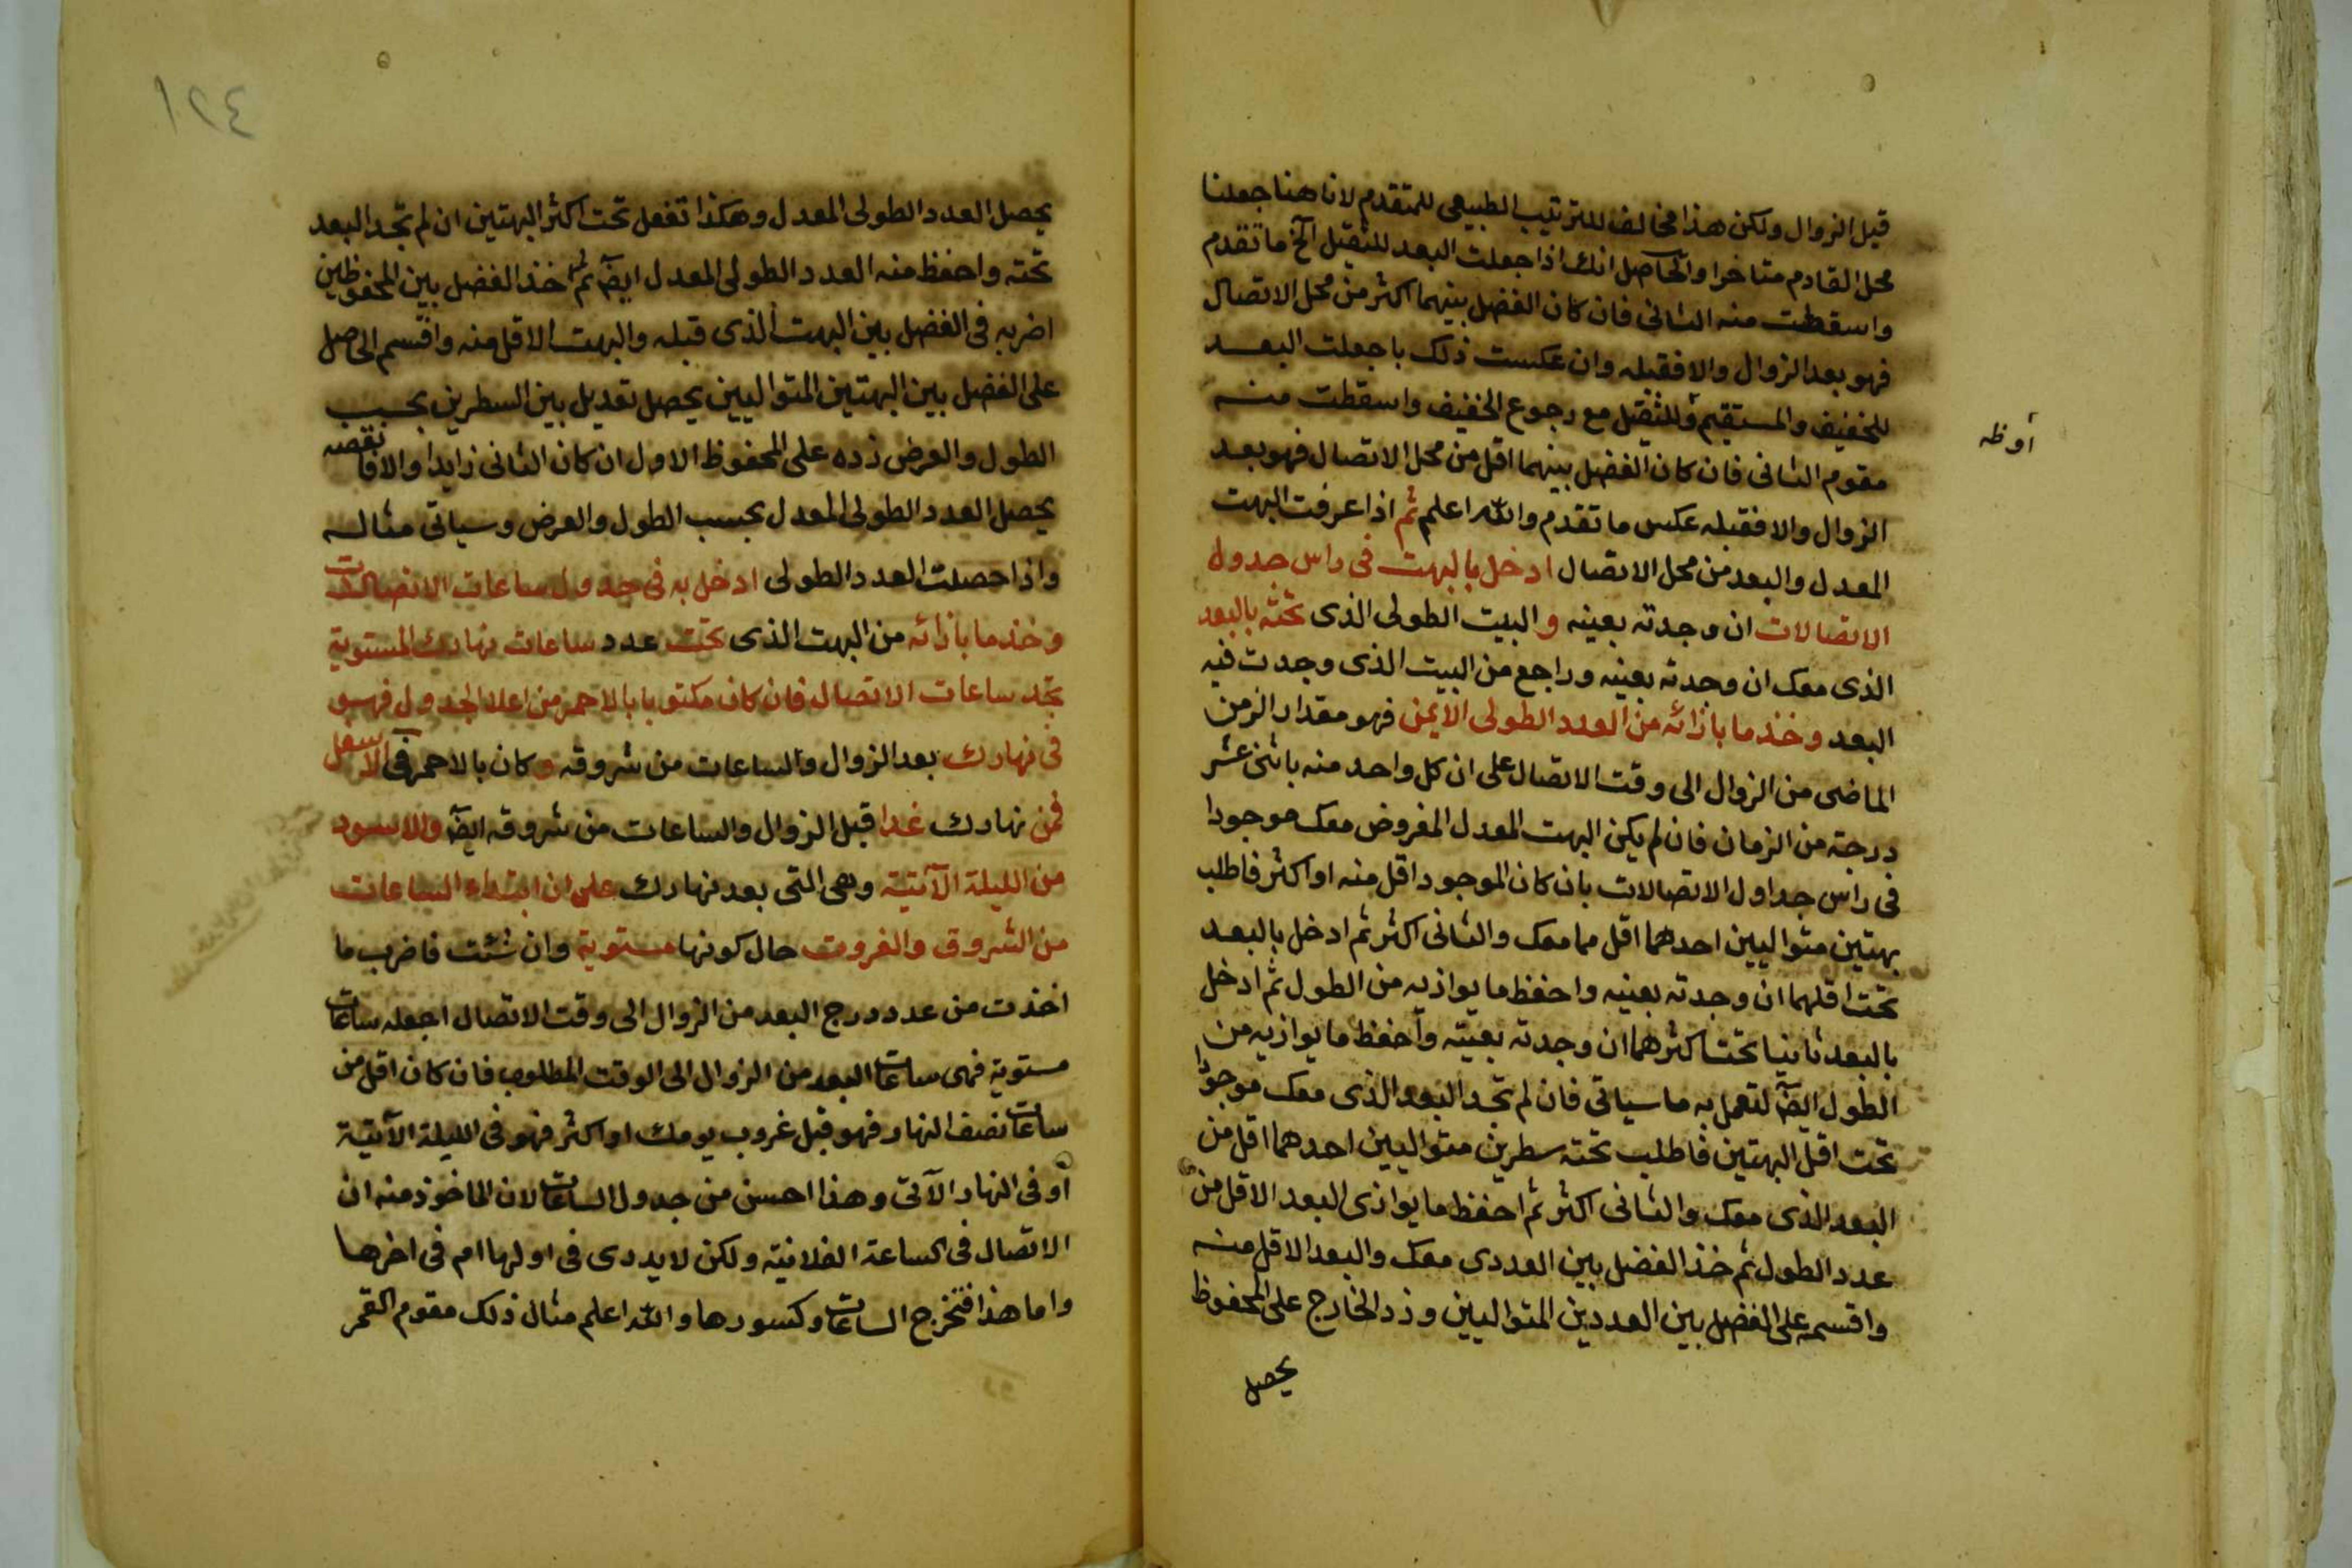 قبل الزوال ولكن هذا مخالف للترتيب الطبيعى للمتقدم لانا هنا جعلنا
محل القادم متاخرا والحاصل انك اذا جعلت البعد للثقيل الخ ما تقدم
واسقطت منه الثانى فان كان الفضل بينهما اكثر من محل الاتصال
فهو بعد الزوال والا فقبله وان عكست ذلك با جعلت البعد
للخفيف والمستقيم وللثقيل مع رجوع الخفيف واسقطت منه
مقوم الثانى فان كان الفضل بينهما اقل من محل الاتصال فهو بعد
الزوال والا فقبله عكس ما تقدم والله اعلم ثم اذا عرفت البهت
المعدل والبعد من محل الاتصال ادخل بالبهت فى راس جدول
الاتصالات ان وجدته بعينه والبيت الطولى الذى تحته بالبعد
الذى معك ان وجدته بعينه وراجع من البيت الذى وجدت فيه
البعد وخذ ما بازائه من العدد الطولى الايمن فهو مقدار الزمن
الماضى من الزوال الى وقت الاتصال على ان كل واحد منه باثنى عشر
درجة من الزمان فان لم يكن البهت المعدل المفروض معك موجودا
فى راس جداول الاتصالات بان كان الموجود اقل منه او اكثر فاطلب
بهتين متواليين احدهما اقل مما معك والثانى اكثر ثم ادخل بالبعد
تحت اقلهما ان وجدته بعينه واحفظ ما يوازيه من الطول ثم ادخل
بالبعد ثانيا تحت اكثرهما ان وجدته بعينه واحفظ ما يوازيه من
الطول ايضا لتعمل به ما سياتى فان لم تجد البعد الذى معك موجودا
تحت اقل البهتين فاطلب تحته سطرين متواليين احدهما اقل من
البعد الذى معك والثانى اكثر ثم احفظ ما يوازى البعد الاقل من
عدد الطول ثم خذ الفضل بين العددى معك والبعد الاقل منه
واقسمه على الفضل بين العددين المتواليين وزد الخارج على المحفوظ
يحصل
أوظه
١٢٤
يحصل العدد الطولى المعدل وهكذا تفعل تحت اكثر البهتين ان لم تجد البعد
تحته واحفظ منه العدد الطولى المعدل ايضا ثم خذ الفضل بين المحفوظين
اضربه فى الفضل بين البهت الذى قبله والبهت الاقل منه واقسم الحاصل
على الفضل بين البهتين المتواليين يحصل تعديل بين السطرين بحسب
الطول والعرض زده على المحفوظ الاول ان كان الثانى زايدا والا فانقصه
يحصل العدد الطولى المعدل بحسب الطول والعرض وسياتى مثاله
واذا حصلت العدد الطولى ادخل به فى جدول ساعات الاتصالات
وخذ ما بازائه من البهت الذى تحت عدد ساعات نهارك المستوية
تجد ساعات الاتصال فان كان مكتوبا بالاحمر من اعلا الجدول فهو
فى نهارك بعد الزوال والساعات من شروقه وكان بالاحمر فى الاسفل
فمن نهارك غدا قبل الزوال والساعات من شروقه ايضا والاسود
من الليلة الآتية وهى التى بعد نهارك على ان ابتداء الساعات
من الشروق والغروب حال كونها مستوية وان شئت فاضرب ما
اخذت من عدد درج البعد من الزوال الى وقت الاتصال اجعله ساعات
مستوية فهى ساعات البعد من الزوال الى الوقت المطلوب فان كان اقل من
ساعات نصف النهار فهو قبل غروب يومك او اكثر فهو فى الليلة الآتية
او فى النهار الآتى وهذا احسن من جدول الساعات لان الماخوذ منه ان
الاتصال فى الساعة الفلانية ولكن لا يدرى فى اولها ام فى اخرها
واما هذا فتخرج الساعات وكسورها والله اعلم مثال ذلك مقوم القمر